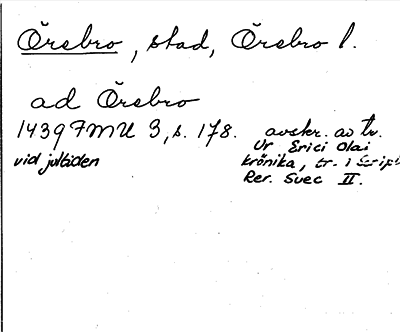 Örebro, stad, Örebro l.
ad Örebro
1439 FMU 3, s. 178. avskr. av tr.
vid jultiden
Ur Erici Olai
krönika, tr. i Script
Rer. Suec II.